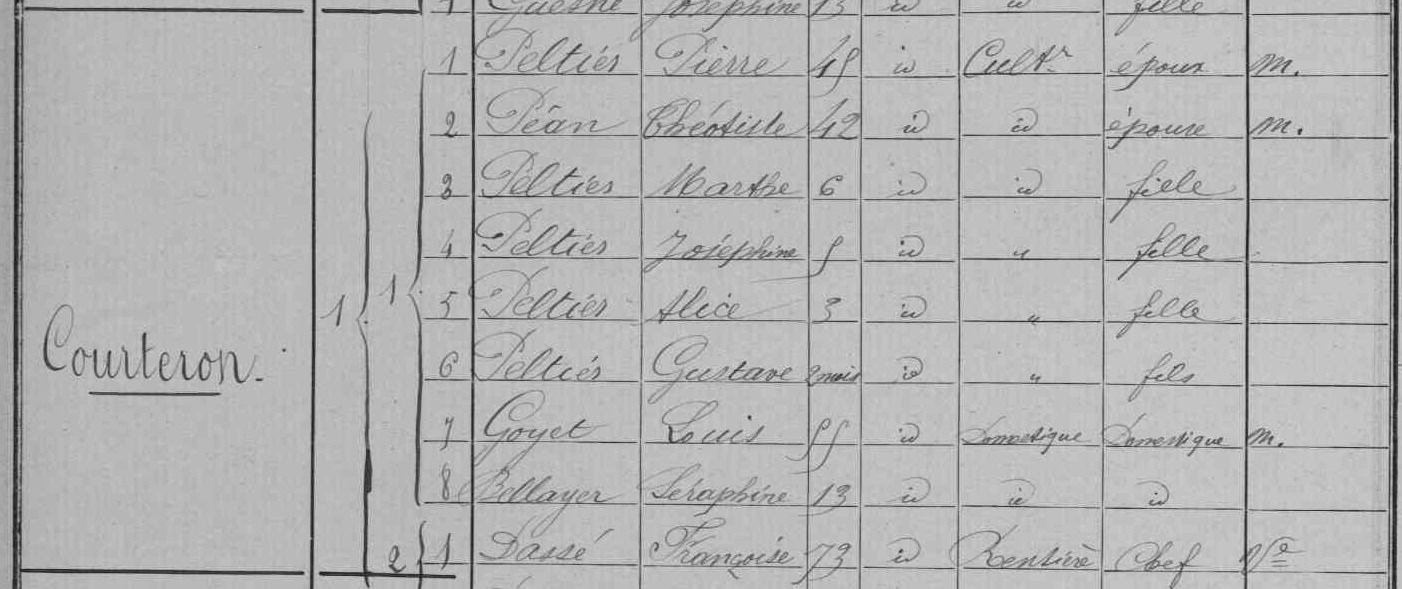 7 Guesne Joséphine 13 id id fille
1 Peltiés Pierre 45 id Cultr époux m.
2 Péan Théotiste 42 id id épouse m.
3 Peltiés Marthe 6 id id fille
4 Peltiés Joséphine 5 id " fille
Courteron. 1 1 5 Peltiés Alice 3 id " fille
6 Peltiés Gustave 2 mois id " fils
7 Goyet Louis 55 id Domestique Domestique m.
8 Bellayer Séraphine 13 id id id
2 1 Dassé Françoise 73 id Rentière Chef Ve